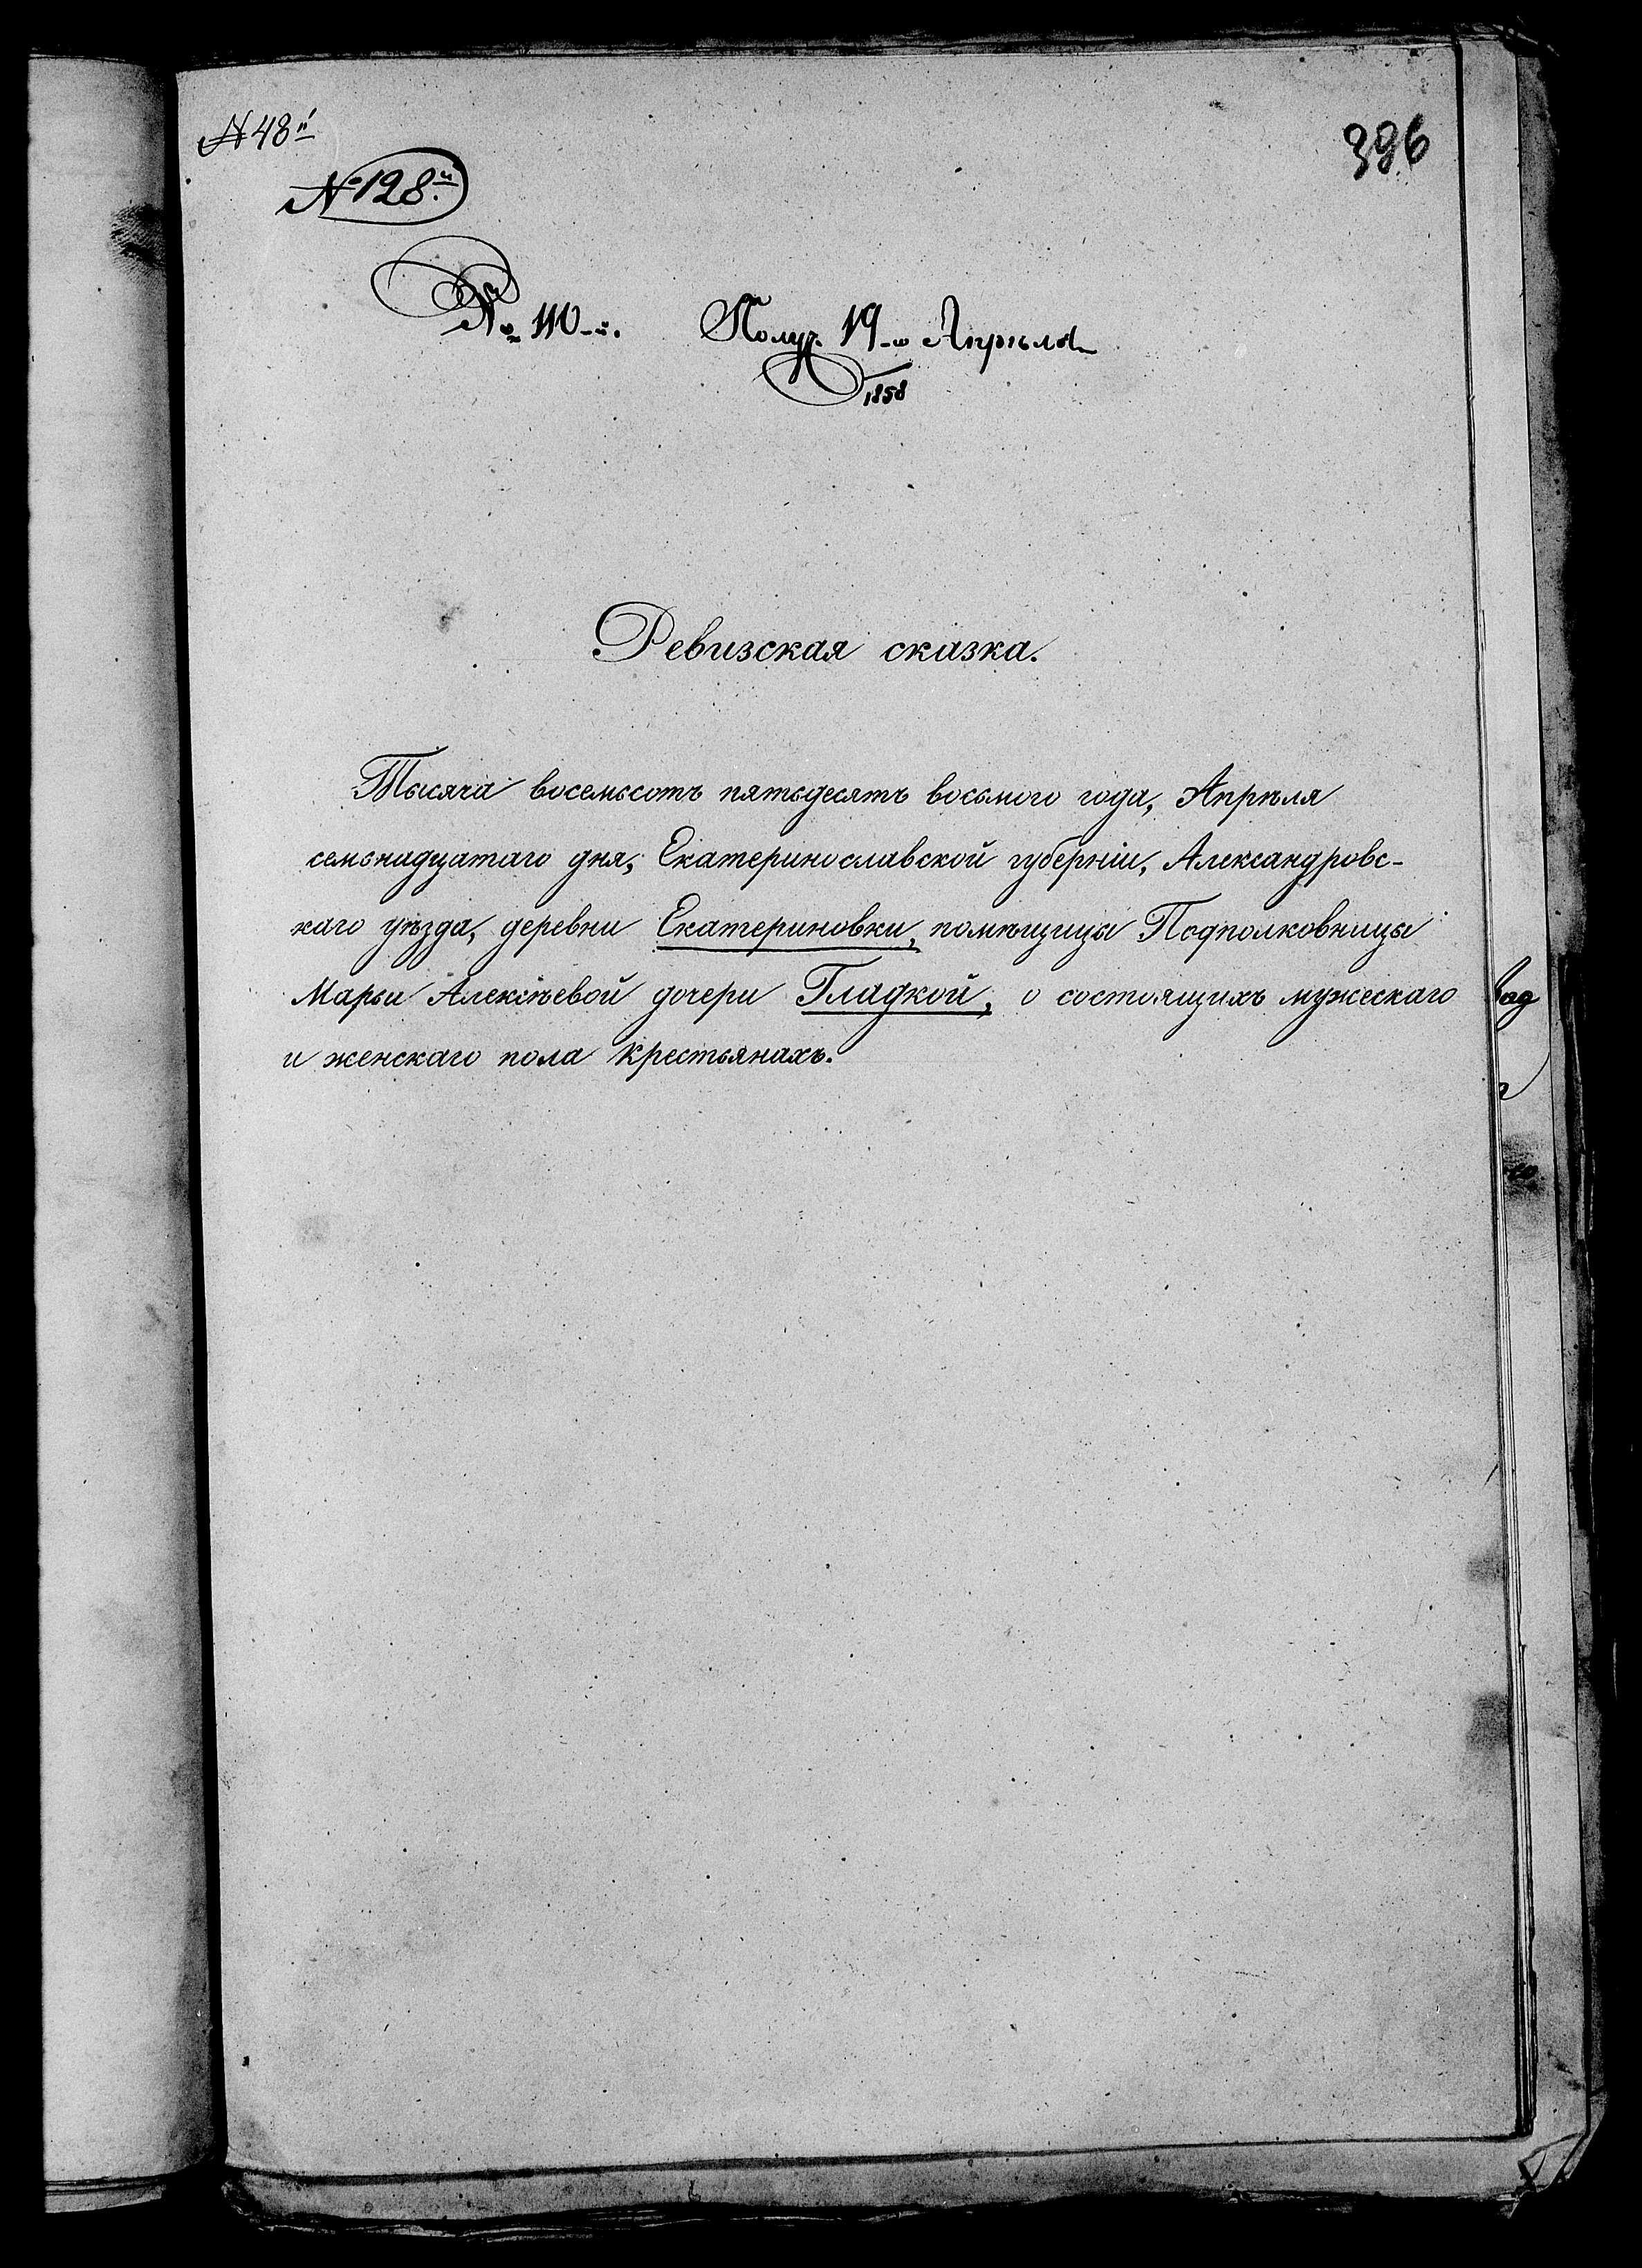 № 48й
396
№ 128.й
№ 110-й. Получ. 19-го Апрѣля
1858
Ревизская сказка.
Тысяча восемьсотъ пятьдесятъ восьмого года, Апрѣля
семьнадцатаго дня, Екатеринославской губерніи, Александровс-
каго уѣзда, деревни Екатериновки, помѣщицы Подполковницы
Марьи Алексѣевой дочери Гладкой, о состоящихъ мужескаго
и женскаго пола крестьянахъ.